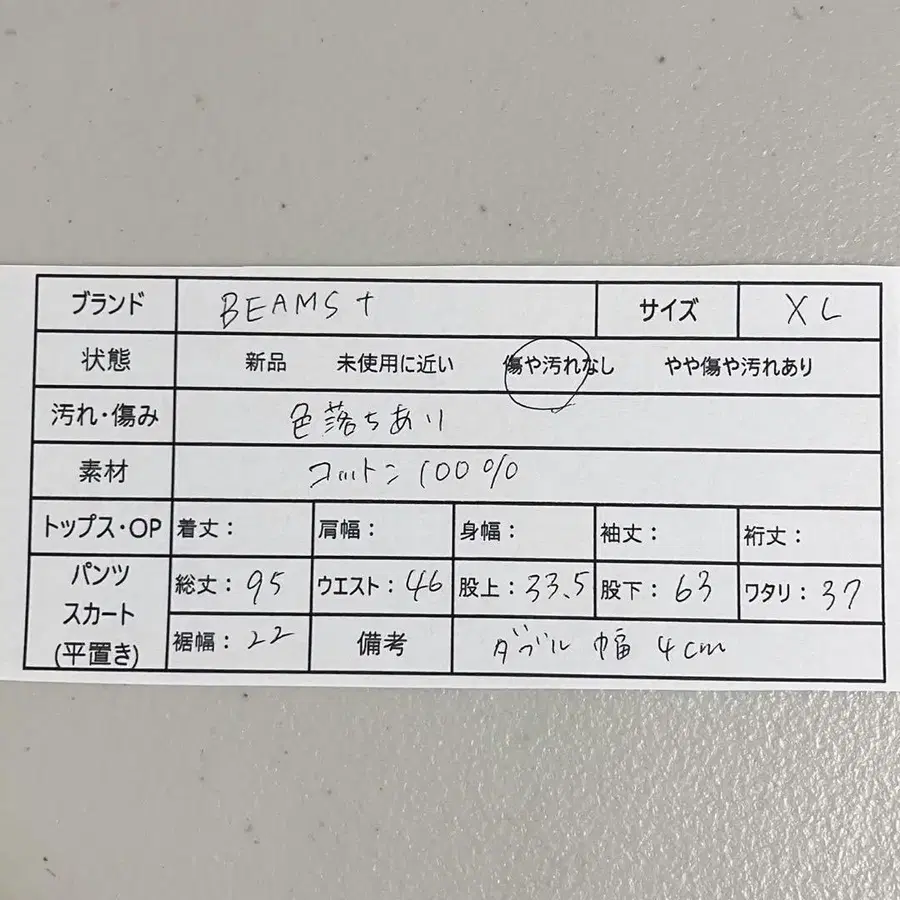 ブランド BEAMS+ サイズ XL
状態 新品 未使用に近い 傷や汚れなし やや傷や汚れあり
汚れ・傷み 色落ちあり
素材 コットン100%
トップス・OP 着丈: 肩幅: 身幅: 袖丈: 裄丈:
パンツ
スカート
(平置き)
総丈:95 ウエスト:46 股上:33.5 股下:63 ワタリ:37
裾幅:22 備考 ダブル幅 4cm